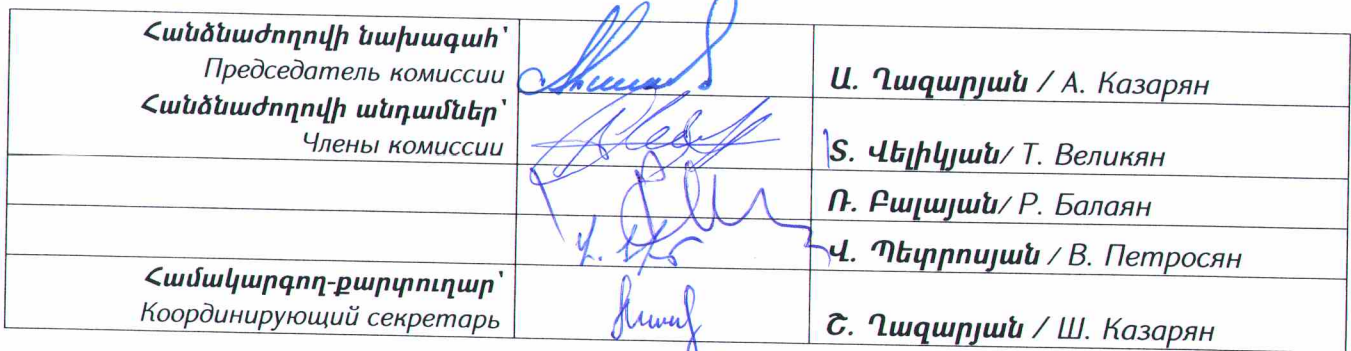 Հանձնաժողովի նախագահ՝
Председатель комиссии
Ա. Ղազարյան / А. Казарян
Հանձնաժողովի անդամներ՝
Члены комиссии
Տ. Վելիկյան/ Т. Великян
Ռ. Բալայան/ Р. Балаян
Վ. Պետրոսյան / В. Петросян
Համակարգող-քարտուղար՝
Координирующий секретарь
Շ. Ղազարյան / Ш. Казарян